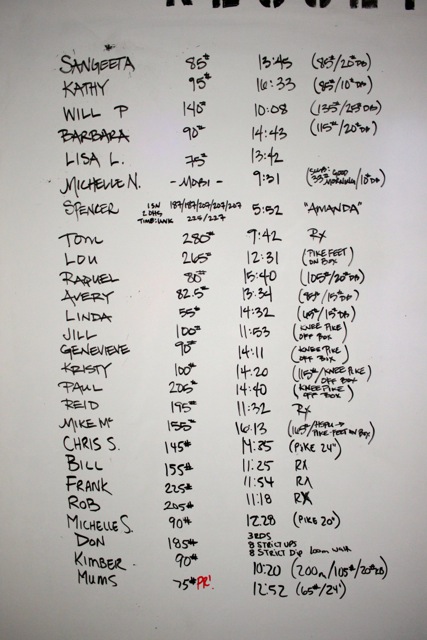 SANGEETA 85# 13:45 (85#/20#DB)
KATHY 95# 16:33 (85#/10#DB)
WILL P 140# 10:08 (135#/25#DB)
BARBARA 90# 14:43 (115#/20#DB)
LISA L. 75# 13:42
MICHELLE N. - MOBI - 9:31 (33# GOOD MORNING/10#DB)
SPENCER 187/187/207/207/207 225/227 5:52 "AMANDA"
TOM 280# 9:42 Rx
LOU 265# 12:31 (PIKE FEET ON BOX)
RAQUEL 80# 15:40 (105#/20#DB)
AVERY 82.5# 13:34 (85#/15#DB)
LINDA 55# 14:32 (65#/15#DB)
JILL 100# 11:53 (KNEE PIKE OFF BOX)
GENEVIEVE 90# 14:11 (KNEE PIKE OFF BOX)
KRISTY 100# 14:20 (115#/KNEE PIKE OFF BOX)
PAUL 205# 14:40 (KNEE PIKE OFF BOX)
REID 195# 11:32 Rx
MIKE Mc 155# 16:13 (165#/HSPU → PIKE-FEET ON BOX)
CHRIS S. 145# (PIKE 24")
BILL 155# 11:25 RX
FRANK 225# 11:54 RX
ROB 205# 11:18 RX
MICHELLE S. 90# 12:28 (PIKE 20")
DON 185# 3RDS 8 STRICT UPS 8 STRICT Dip
KIMBER 90# 10:20 (200m/105#/20#DB)
MUMS 75# PR! 12:52 (65#/24")